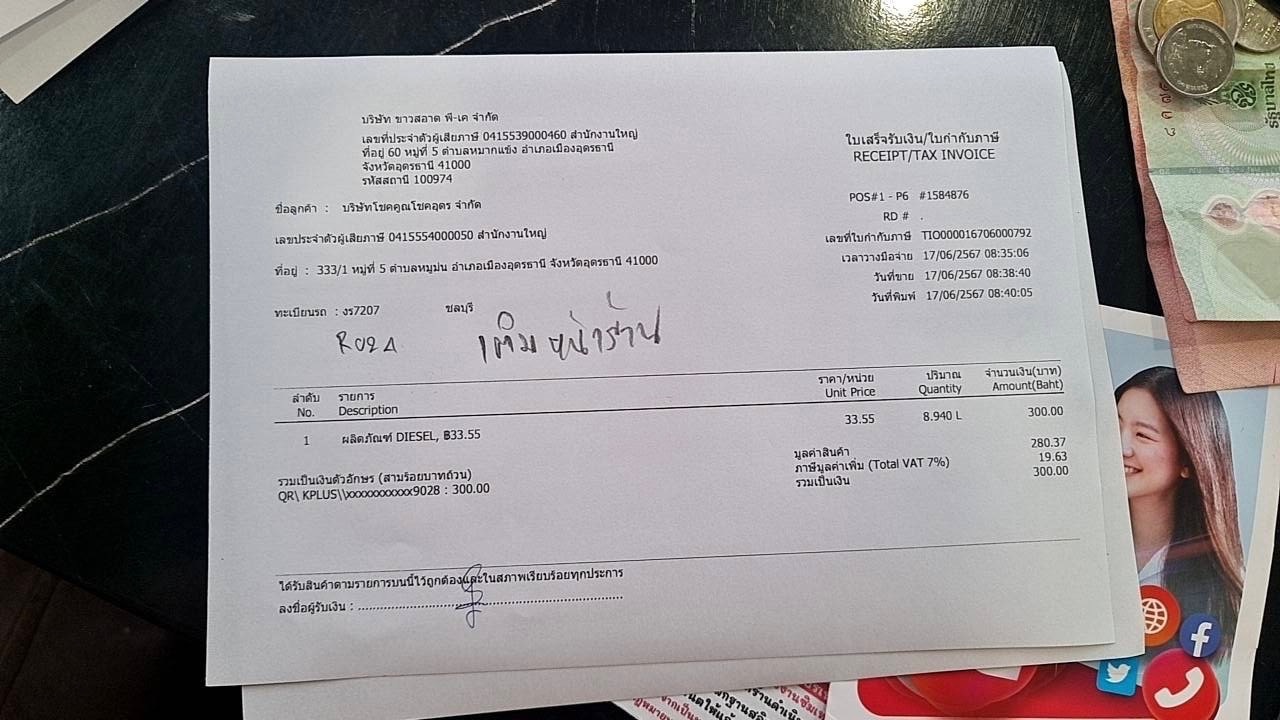 บริษัท ขาวสอาด พี-เค จำกัด
เลขที่ประจำตัวผู้เสียภาษี 0415539000460 สำนักงานใหญ่
ที่อยู่ 60 หมู่ที่ 5 ตำบลหมากแข้ง อำเภอเมืองอุดรธานี
จังหวัดอุดรธานี 41000
รหัสสถานี 100974
ใบเสร็จรับเงิน/ใบกำกับภาษี
RECEIPT/TAX INVOICE
POS#1 - P6 #1584876
RD # .
เลขที่ใบกำกับภาษี TIO000016706000792
เวลาวางมือจ่าย 17/06/2567 08:35:06
วันที่ขาย 17/06/2567 08:38:40
วันที่พิมพ์ 17/06/2567 08:40:05
ชื่อลูกค้า : บริษัทโชคคูณโชคอุดร จำกัด
เลขประจำตัวผู้เสียภาษี 0415554000050 สำนักงานใหญ่
ที่อยู่ : 333/1 หมู่ที่ 5 ตำบลหมูม่น อำเภอเมืองอุดรธานี จังหวัดอุดรธานี 41000
ทะเบียนรถ : งร7207 ชลบุรี
เติมหน้าร้าน
ลำดับ รายการ ราคา/หน่วย ปริมาณ จำนวนเงิน(บาท)
No. Description Unit Price Quantity Amount(Baht)
1 ผลิตภัณฑ์ DIESEL, ฿33.55 33.55 8.940 L 300.00
มูลค่าสินค้า 280.37
ภาษีมูลค่าเพิ่ม (Total VAT 7%) 19.63
รวมเป็นเงิน 300.00
รวมเป็นเงินตัวอักษร (สามร้อยบาทถ้วน)
QR\ KPLUS\\xxxxxxxxxxx9028 : 300.00
ได้รับสินค้าตามรายการบนนี้ไว้ถูกต้องและในสภาพเรียบร้อยทุกประการ
ลงชื่อผู้รับเงิน :
รัฐบาลไทย